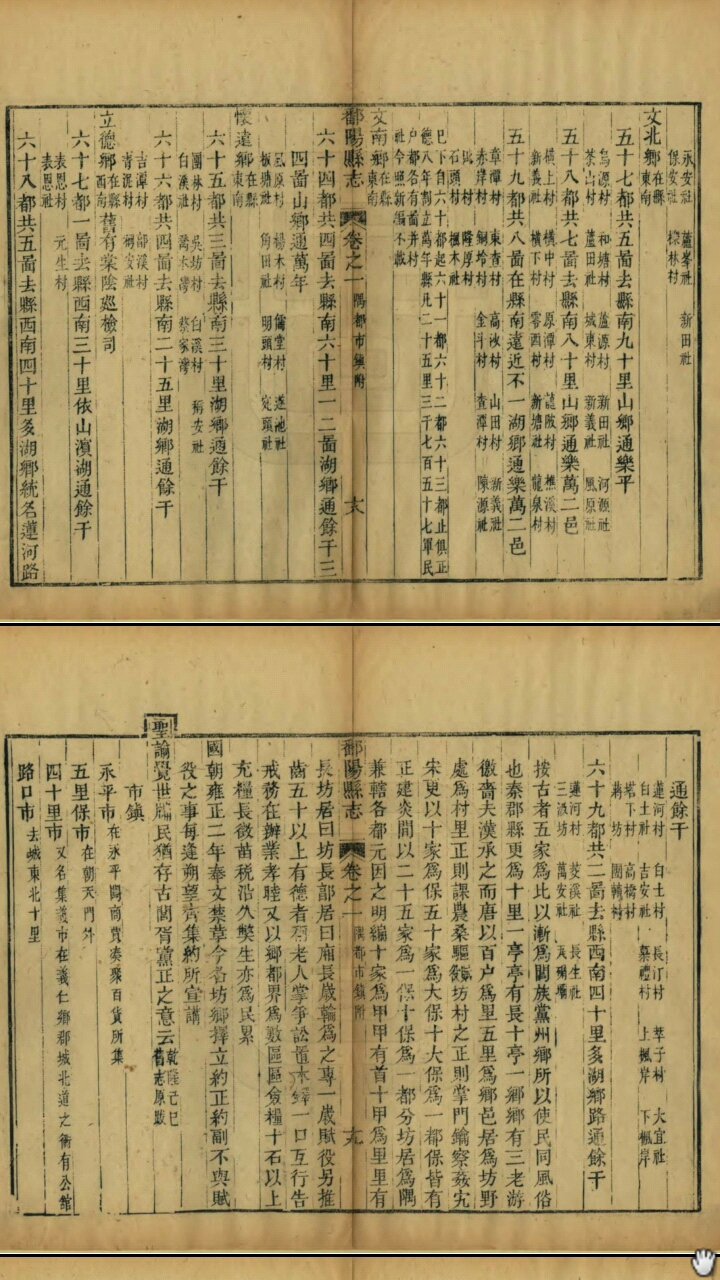 永安社 蘆峯社 新田社
保安社 櫟林村
文北鄉在縣東南
五十七都共五啚去縣南九十里山鄉通樂平
烏源村 和塘村 蘆源村 新田社 河源社
茶山村 蘆田社 城東村 新義社 風原社
五十八都共七啚去縣南八十里山鄉通樂萬二邑
橫上村 橫中村 原潭村 蓮陂村 樵溪村
新義社 橫下村 零西村 新塘社 龍泉村
五十九都共八啚在縣南遠近不一湖鄉通樂萬二邑
章潭村 東查村 高汝村 山田村 新義社
赤岸村 銅坽村 金斗村 查潭村 陳源社
石頭村 楓木社
巳下自六十都起六十一都六十二都六十三都止俱正
德八年割立萬年縣凡二十五里三千七百五十七軍民
户都各有啚并村
社今照新編不載
文南鄉在縣東南
鄱陽縣志 卷之一 隅都市鎮附 大
六十四都共四啚去縣南六十里一二啚湖鄉通餘干三
四啚山鄉通萬年
風原村 楊木村 儒堂村 蓮池社
板塘社 角田社 明頭村 安頭社
懷遠鄉在縣東南
六十五都共三啚去縣南三十里湖鄉通餘干
團林村 吳坊村 白溪村 稱安社
白溪社 喬木灣 蔡家灣
六十六都共四啚去縣南二十五里湖鄉通餘干
吉潭村 郎溪村
青泥村 稱安社
立德鄉在縣西南舊有棠陰廵檢司
六十七都一啚去縣西南三十里依山濵湖通餘干
表恩村 元生村
表恩社
六十八都共五啚去縣西南四十里多湖鄉統名蓮河路
通餘干
蓮河村 白土村 長汀村 莘子村 大宜社
白土社 吉安社 築禮村 上楓岸 下楓岸
塔下村 高橋村
蔣坊 團轉村
六十九都共二啚去縣西南四十里多湖鄉路通餘干
蓮河村 菱溪社 長生社
三派坊 萬安社
按古者五家爲比以漸爲閭族黨州鄉所以使民同風俗
也秦郡縣更爲十里一亭亭有長十亭一鄉鄉有三老游
徼嗇夫漢承之而唐以百户爲里五里爲鄉邑居爲坊野
處爲村里正則課農桑驅賦役坊村之正則掌門鑰察姦宄
宋更以十家爲保五十家爲大保十大保爲一都保皆有
正建炎間以二十五家爲一保十保爲一都分坊居爲隅
兼轄各都元因之明編十家爲甲甲有首十甲爲里里有
鄱陽縣志 卷之一 隅都市鎮附 十九
長坊居曰坊長部居曰廂長歲輪爲之專一歲賦役另推
齒五十以上有德者爲老人掌爭訟置木鐸一口互行告
戒務在辦業孝睦又以鄉都界爲數區區僉糧十石以上
充糧長徵苗税沿久獘生亦爲民累
國朝雍正二年奉文禁革今名坊鄉擇立約正約副不與賦
役之事每逢朔望齊集約所宣講
聖諭覺世牖民猶存古閭胥黨正之意云乾隆己巳舊志原跋
市鎮
永平市在永平關商賈湊聚百貨所集
五里保市在朝天門外
四十里市又名集義市在義仁鄉郡城北道之衝有公館
路口市去城東北十里